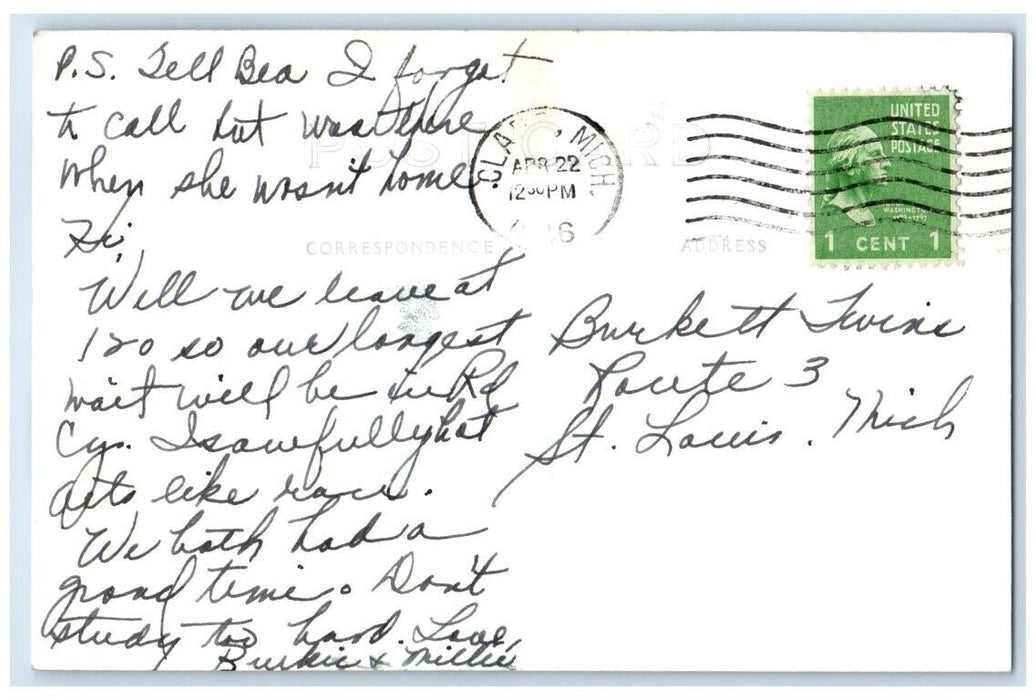 P.S. Tell Bea I forgot
to call but was there
when she wasn't home
Hi,
Well we leave at
120 so our longest
wait will be in Rd
Cy. Is awfully hot
acts like rain.
We both had a
grand time. Don't
study too hard. Love,
Burkie & Millie
POST CARD
CORRESPONDENCE
ADDRESS
CLARE, MICH.
APR 22
12 30 PM
UNITED
STATES
POSTAGE
WASHINGTON
1 CENT 1
Burkett Twins
Route 3
St. Louis, Mich